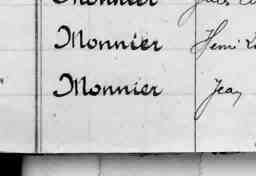 Monnier
Monnier Henri
Monnier Jean